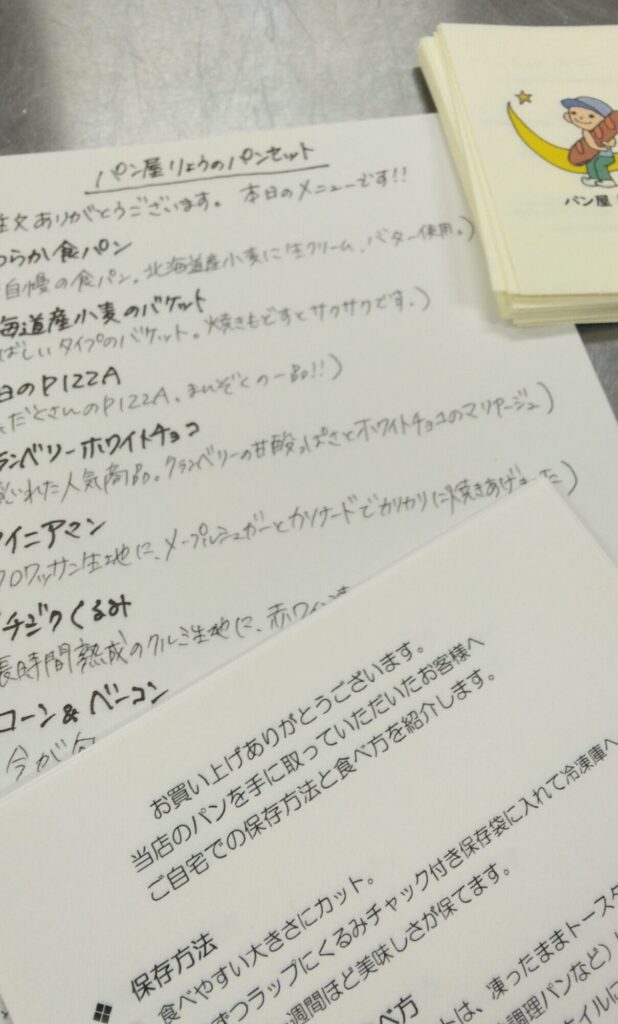 パン屋りょうのパンセット
注文ありがとうございます。 本日のメニューです!!
わらか食パン
自慢の食パン。北海道産小麦に生クリーム、バター使用。)
海道産小麦のバケット
ばしいタイプのバケット。焼きもどすとサクサクです。)
日のPIZZA
だとさんのPIZZA、まんぞくの一品!!)
ランベリーホワイトチョコ
れた人気商品。クランベリーの甘酸っぱさとホワイトチョコのマリアージュ)
イニアマン
ロワッサン生地に、メープルシュガーとカソナードでカリカリに焼きあげました)
チジクくるみ
長時間熟成のクルミ生地に、赤ワイン
コーン&ベーコン
今が旬
パン屋
お買い上げありがとうございます。
当店のパンを手に取っていただいたお客様へ
ご自宅での保存方法と食べ方を紹介します。
保存方法
食べやすい大きさにカット。
ずつラップにくるみチャック付き保存袋に入れて冷凍庫へ
週間ほど美味しさが保てます。
べ方
トは、凍ったままトースタ
調理パンなど)
イルに